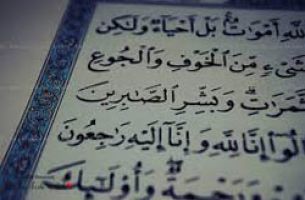 اللَّهِ أَمْوَاتٌ ۚ بَلْ أَحْيَاءٌ وَلَٰكِن
بِشَىْءٍ مِّنَ ٱلْخَوْفِ وَٱلْجُوعِ
ثَّمَرَٰتِ ۗ وَبَشِّرِ ٱلصَّٰبِرِينَ
قَالُوٓا۟ إِنَّا لِلَّهِ وَإِنَّآ إِلَيْهِ رَٰجِعُونَ
وَرَحْمَةٌ ۖ وَأُو۟لَٰٓئِكَ